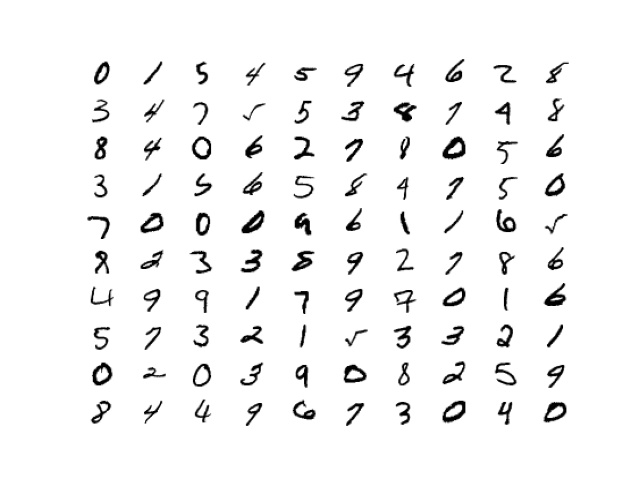 0 1 5 4 5 9 4 6 2 8
3 4 7 √ 5 3 8 7 4 8
8 4 0 6 2 7 8 0 5 6
3 1 5 6 5 8 4 7 5 0
7 0 0 0 9 6 1 1 6 √
8 2 3 3 8 9 2 7 8 6
4 9 9 1 7 9 7 0 1 6
5 7 3 2 1 √ 3 3 2 1
0 2 0 3 9 0 8 2 5 9
8 4 4 9 6 7 3 0 4 0